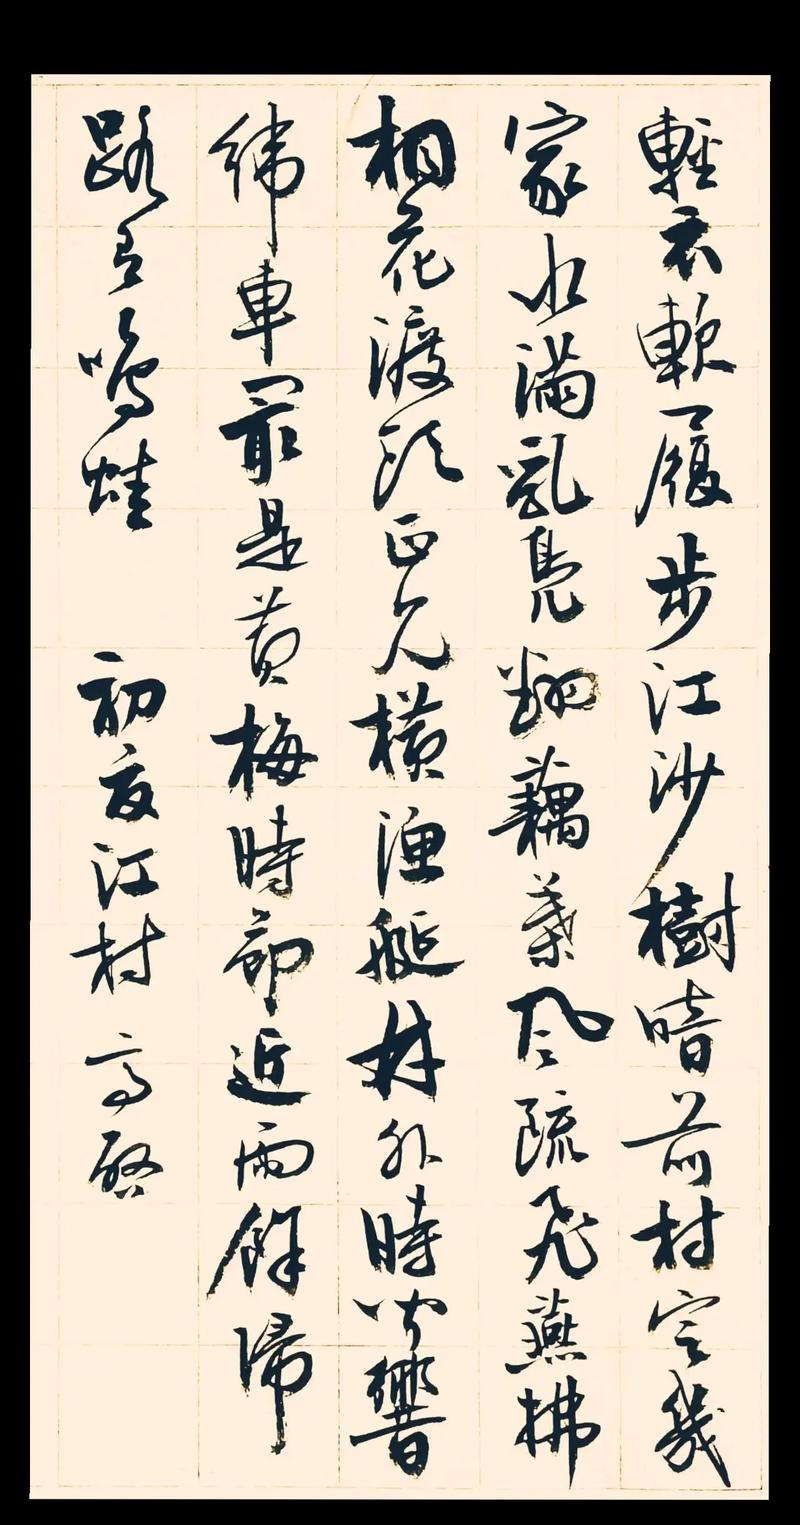 輕衣軟履步江沙樹暗前村定幾
家水滿乳鳧翻藕葉風疏飛燕拂
桐花渡頭正見橫漁艇林外時聞響
緯車最是黃梅時節近雨餘歸
路有鳴蛙 初夏江村 高啓